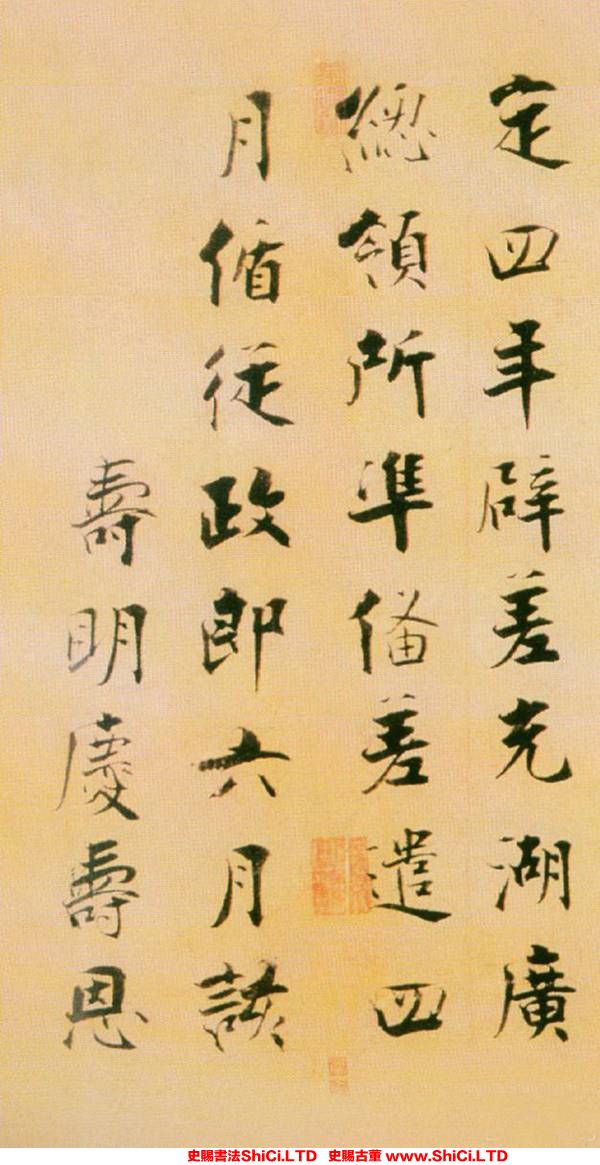 定四年辟差充湖廣
總領所準俻差遣四
月循從政郎六月該
壽明慶壽恩
史賜書法ShiCi.LTD 史賜古董 www.ShiCi.LTD